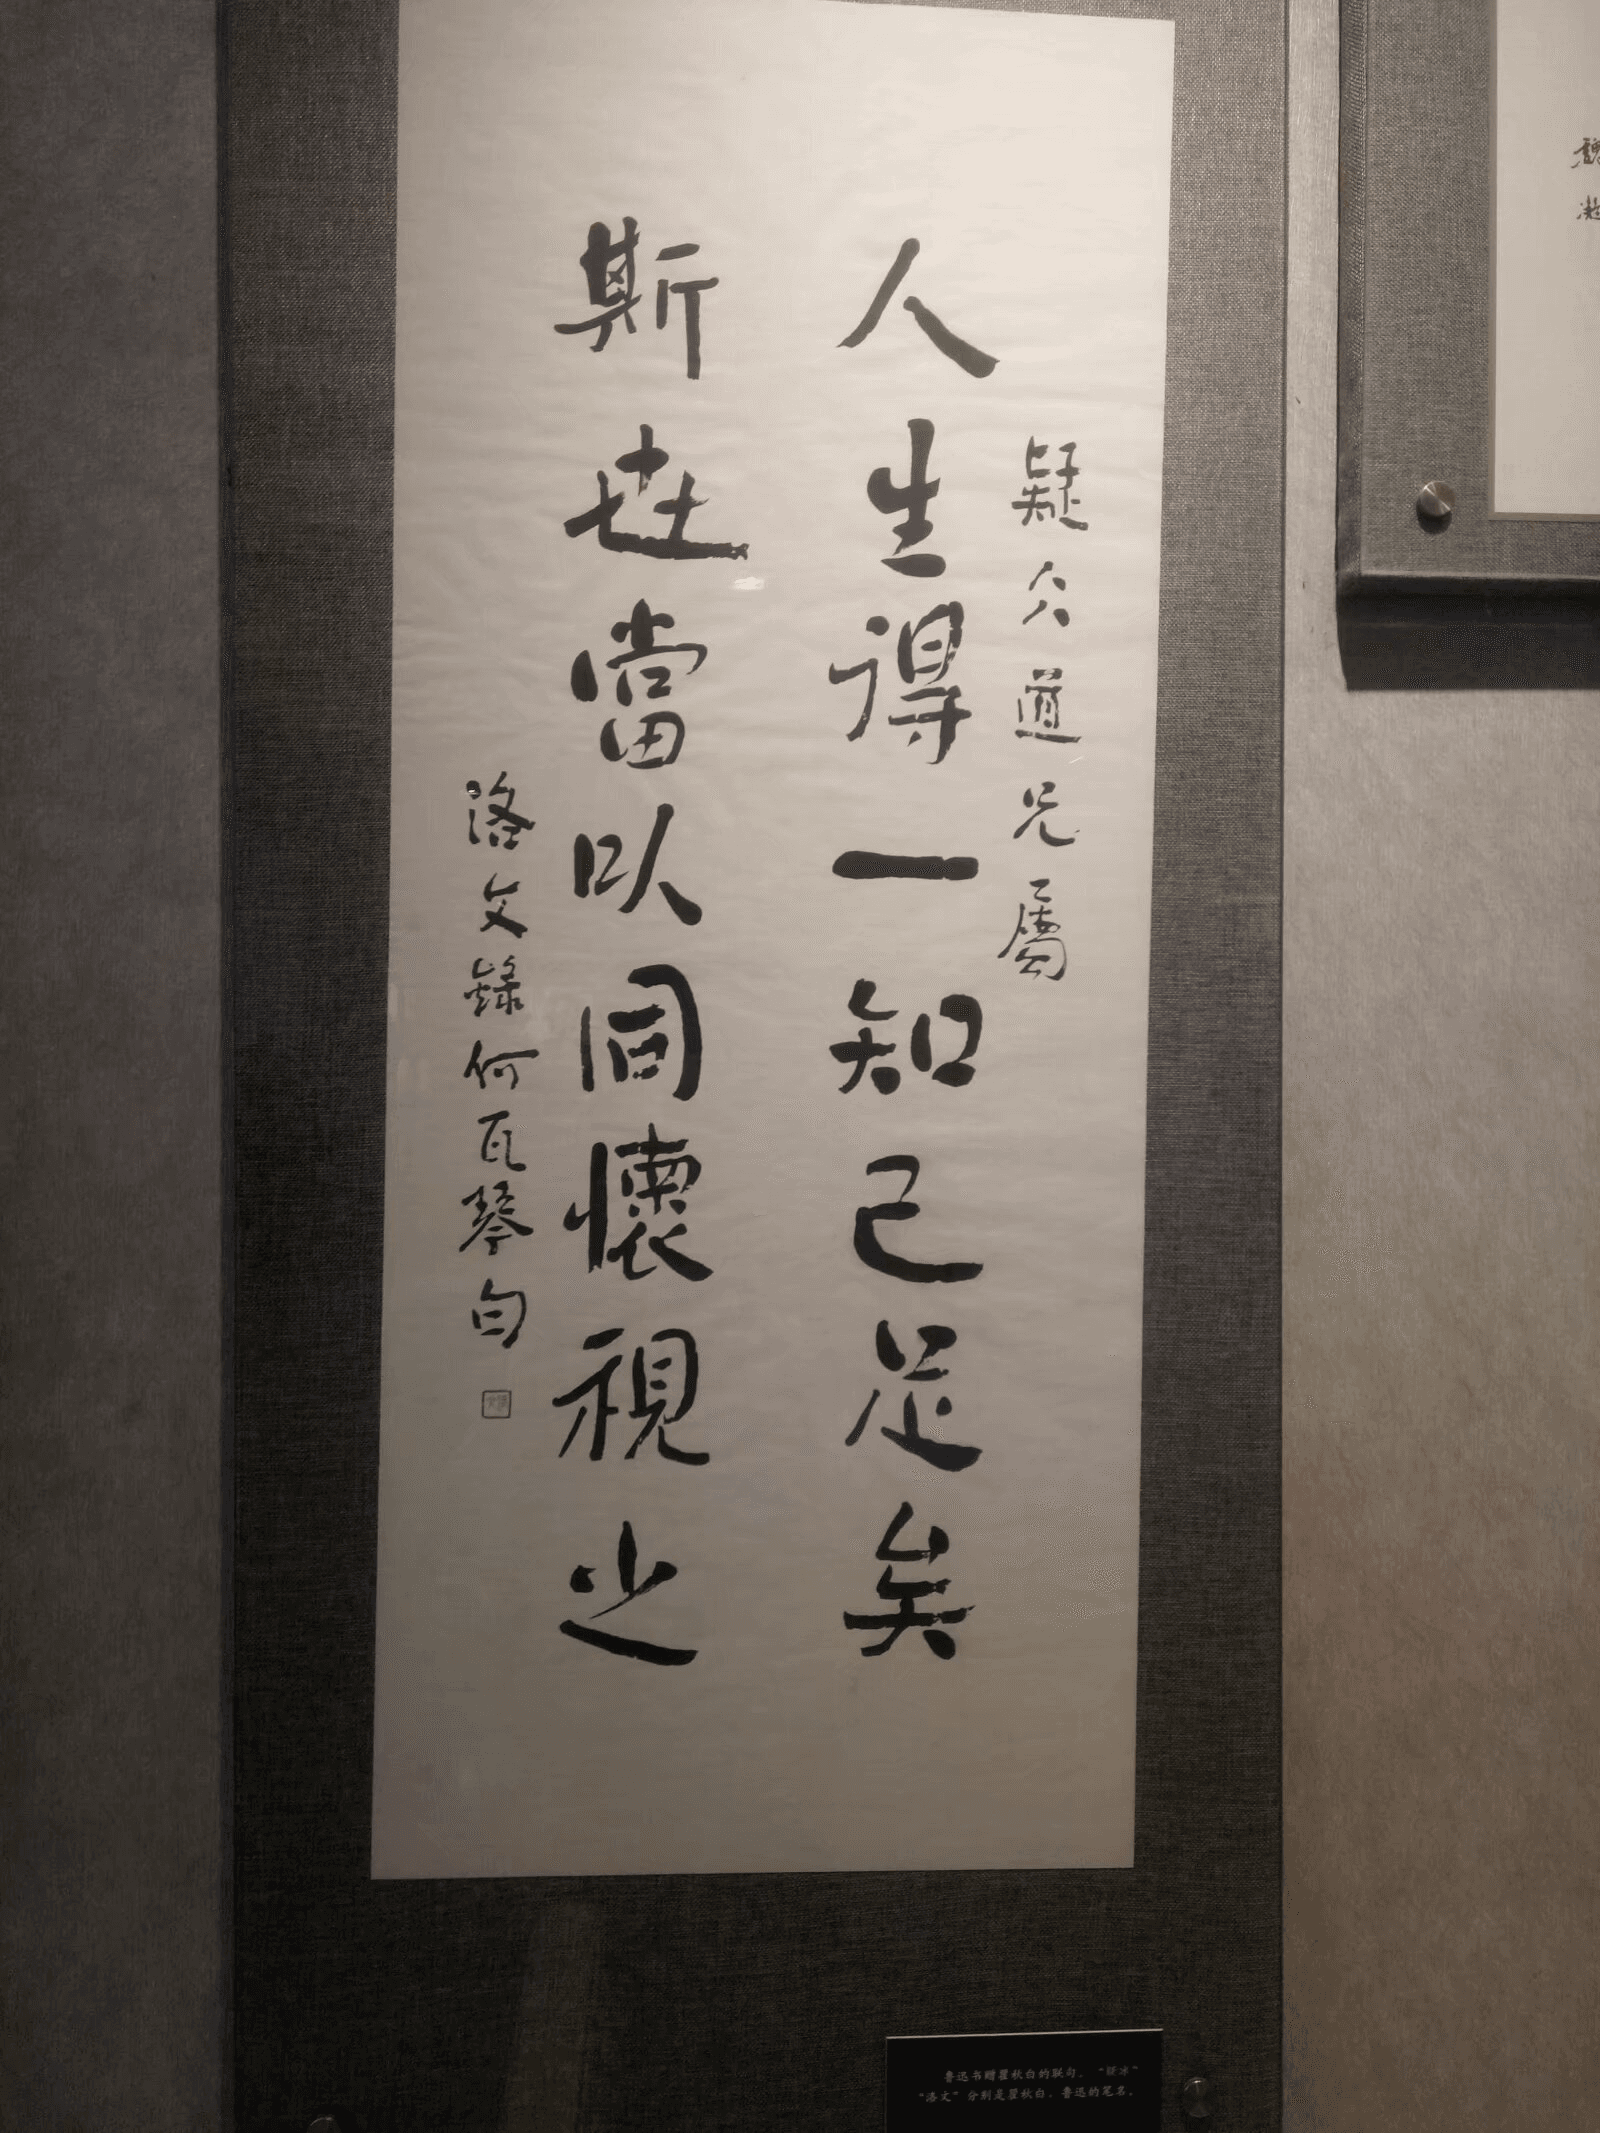 疑仌道兄屬
人生得一知己足矣
斯世當以同懷視之
洛文錄何瓦琴句
鲁迅书赠瞿秋白的联句。“疑冰”
“洛文”分别是瞿秋白、鲁迅的笔名。